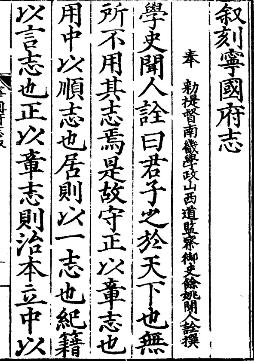 叙刻寧國府志
奉勑提督南畿學政山西道監察御史餘姚聞人詮撰
學史聞人詮曰君子之於天下也無
所不用其志焉是故守正以章志也
用中以順志也居則以一志也紀籍
以言志也正以章志則治本立中以